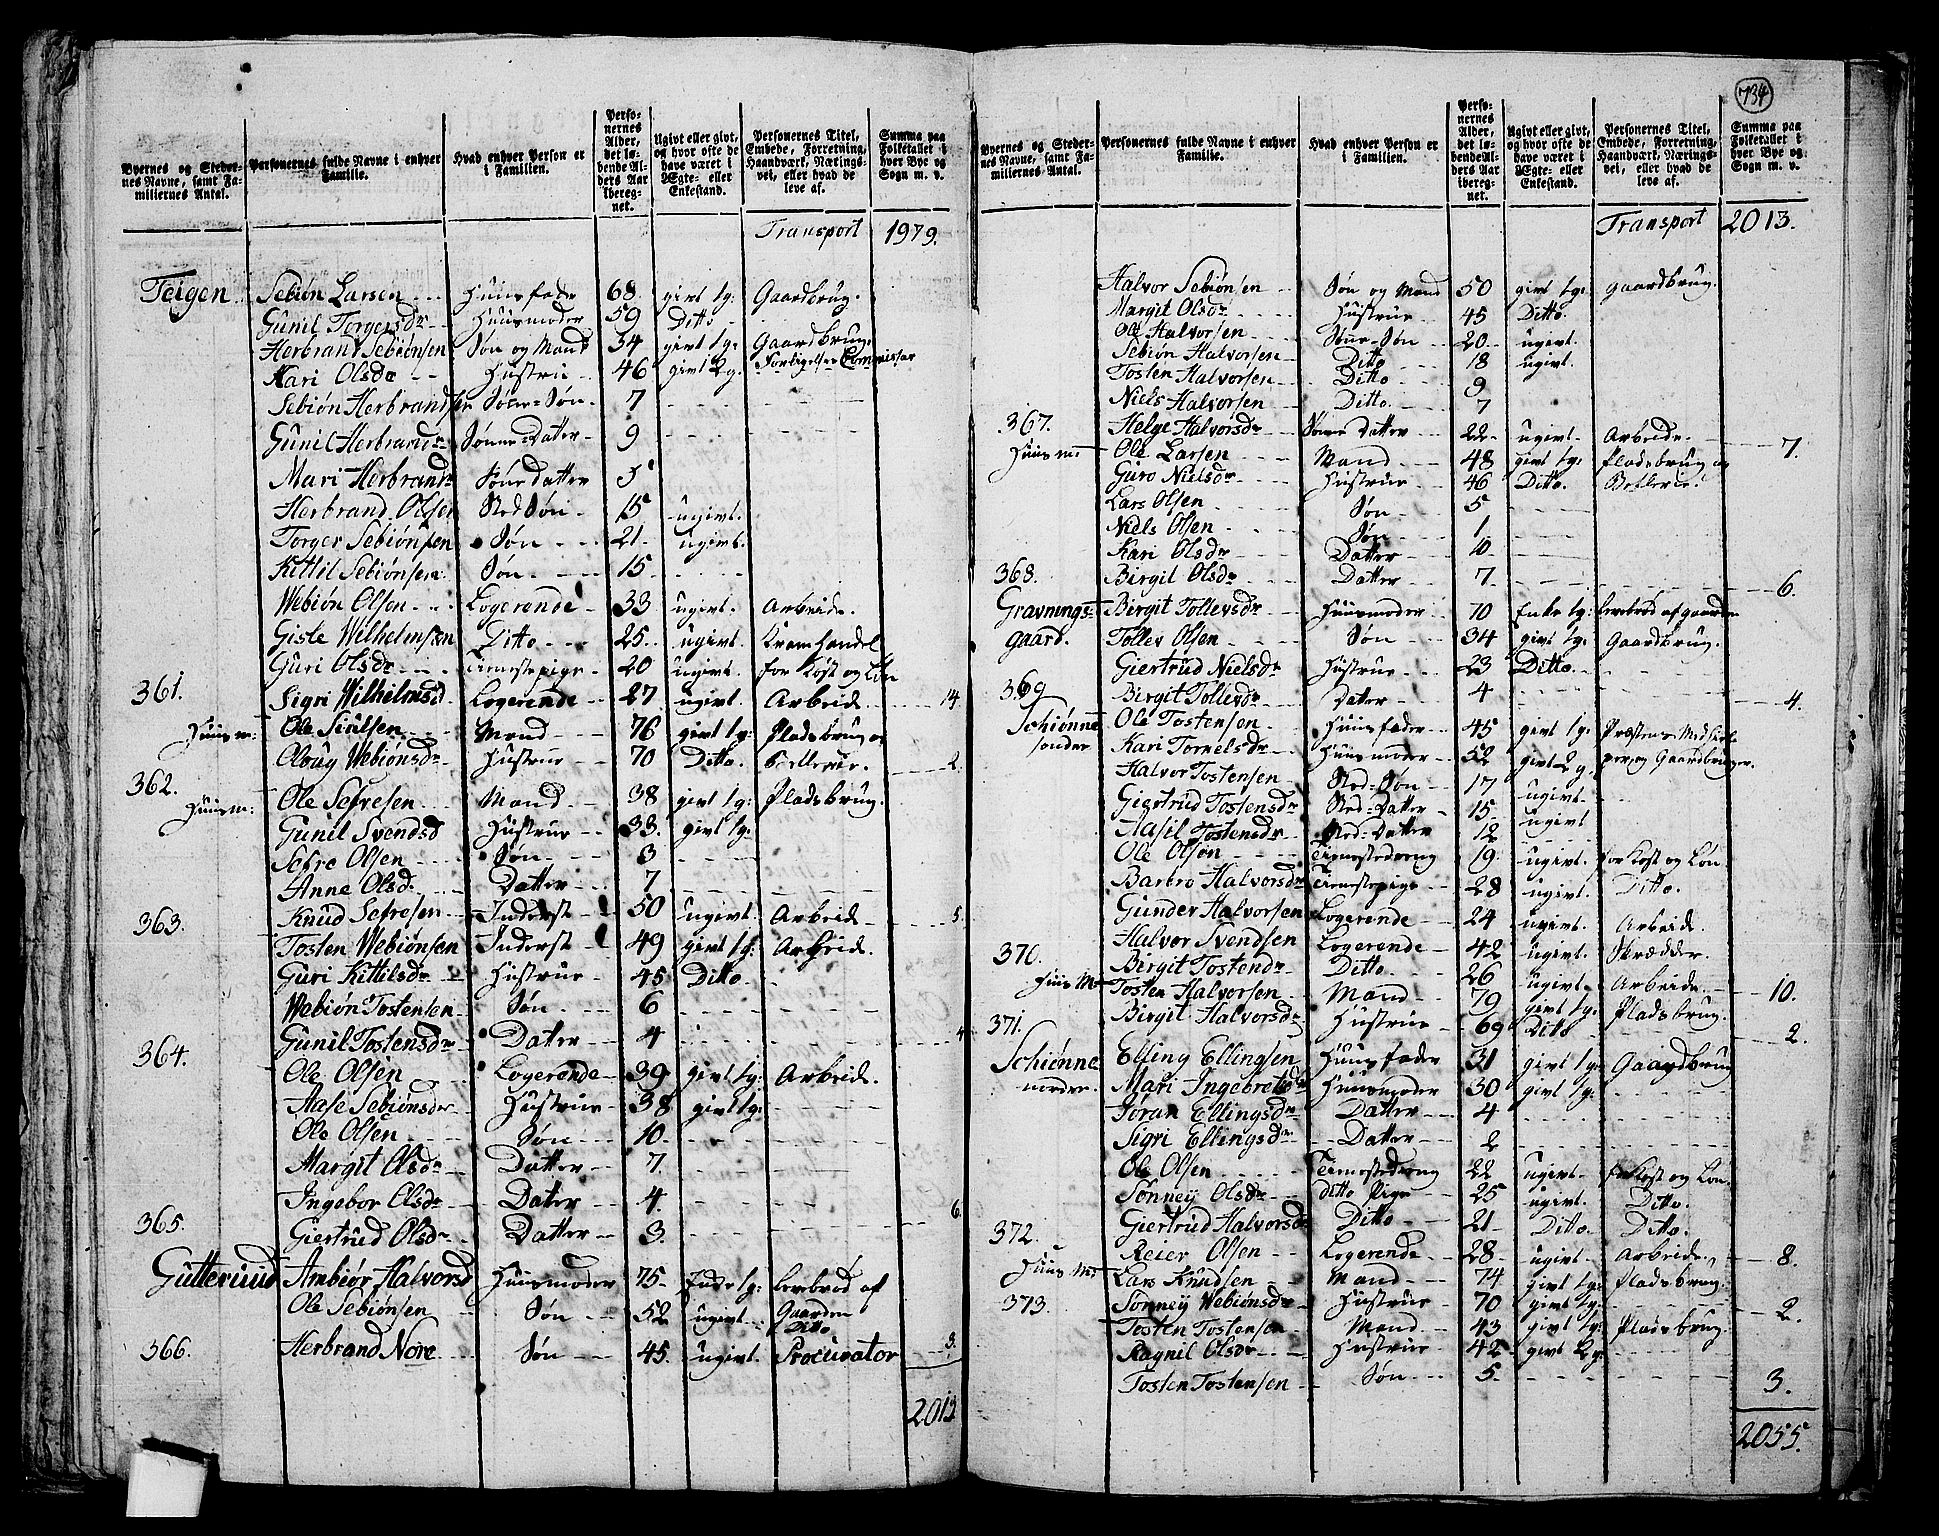 Byernes og Stedernes Navne, samt Familiernes Antal. | Personernes fulde Navne i enhver Familie. | Hvad enhver Person er i Familien. | Personernes Alder, det løbende Alders Aar iberegnet. | Ugivt eller givt, og hvor ofte de have været i Ægte- eller Enkestand. | Personernes Titel, Embede, Forretning, Haandværk, Næringsvei, eller hvad de leve af. | Summa paa Folketallet i hver Bye og Sogn m. v.
Transport 1979.
Teigen Sebiön Larsen Huusfader 68 givt 1g: Gaardbrug.
Gunil Torgersdr Huusmoder 59 Ditto
Herbrand Sebiönsen Søn og Mand 34 givt 1g: Gaardbrug.
Kari Olsdr Hustrue 46 givt 2g. Forligelses Commissær
Sebiön Herbrandsen Sönne-Søn 7
Gunil Herbrandsdr Sönne-Datter 9
Mari Herbrandsdr Sönedatter 5
Herbrand Olsen Sted Søn 15 ugivt.
Torger Sebiönsen Søn 21 ugivt.
Kittil Sebiönsen Søn 15
Webiön Olsen Logerende 33 ugivt. Arbeide.
Giste Wilhelmsen Ditto 25 ugivt. Kramhandel
Guri Olsdr Tienestepige 20 ugivt. for Kost og Løn
361. Sigri Wilhelmsd Logerende 27 ugivt. Arbeide 14
Huusm: Ole Siulsen Mand 76 givt 1g: Pladsbrug og
Aloug Webiönsdr Hustrue 70 Ditto. Betlerie. 2.
362.
Huusm: Ole Sefresen Mand 38 givt 1g: Pladsbrug.
Gunil Svendsd Hustrue 33. givt 1g:
Sefre Olsen Søn 3
Anne Olsd. Datter 7
363. Knud Sefresen Inderst 50 ugivt. Arbeide 5.
Tosten Webiönsen Inderst 49 givt 1g: Arbeide.
Guri Kittilsdr Hustrue 45 Ditto
Webiön Tostensen Søn 6
364. Gunil Tostensdr Dater 4 4
Ole Olsen Logerende 39 givt 1g: Arbeide.
Aase Sebiönsdr Hustrue 38 givt 1g:
Ole Olsen Søn 10
Margit Olsdr Datter 7.
Ingebor Olsdr Dater 4.
365. Giertrud Olsdr Datter 3. 6.
Gutteruud Ambiör Halvorsd Huusmoder 75 Enke 1g: Levebrød af
Ole Sebiönsen Søn 52 ugivt. Gaarden
Ditto
366. Herbrand Nore Søn 45. ugivt. Procurator 3.
2013
734
Byernes og Stedernes Navne, samt Familiernes Antal. | Personernes fulde Navne i enhver Familie. | Hvad enhver Person er i Familien. | Personernes Alder, det løbende Alders Aar iberegnet. | Ugivt eller givt, og hvor ofte de have været i Ægte- eller Enkestand. | Personernes Titel, Embede, Forretning, Haandværk, Næringsvei, eller hvad de leve af. | Summa paa Folketallet i hver Bye og Sogn m. v.
Transport 2013.
Halvor Sebiönsen Søn og Mand 50 givt 1g: gaardbrug.
Margit Olsdr Hustrue 45 Ditto.
Ole Halvorsen Sönne-Søn 20 ugivt.
Sebiön Halvorsen Ditto 18 ugivt.
Tosten Halvorsen Ditto 9
Niels Halvorsen Ditto 7
367. Helge Halvorsdr Sönne Datter 22 ugivt. Arbeide. 7.
Huusm: Ole Larsen Mand 48 givt 1g: Pladsbrug og
Guro Nielsdr Hustrue 46 Ditto. Betlerie.
Lars Olsen Søn 5
Niels Olsen Søn 1
Kari Olsdr Datter 10
368. Birgit Olsdr Datter 7 6.
Gravnings- Birgit Tollevsdr Huusmoder 70 Enke 1g: Levebrød af gaarden
gaard. Tollev Olsen Søn 34 givt 1g: Gaardbrug.
Giertrud Nielsdr Hustrue 23 Ditto.
369 Birgit Tollevdr Dater 4 4.
Schiönne Ole Tostensen Huusfader 45 givt 1g: Præstens Medhiel-
sondre Kari Tornelsdr Huusmoder 52 givt 2g. per, og Gaardbruger.
Halvor Tostensen Sted-Søn 17 ugivt.
Giertrud Tostensdr Sted-Datter 15 ugivt.
Aasil Tostensdr Sted-Datter 12
Ole Olsøn Tienestedreng 19. ugivt. for Kost og Løn.
Barbro Halvorsdr Tienestepige 28 ugivt. Ditto.
Gunder Halvorsen Logerende 24 ugivt. Arbeide.
Halvor Svendsen Logerende 42 ugivt. Skrædder.
370. Birgit Tostendr Ditto. 26 ugivt. Arbeide. 10.
Huus M: Tosten Halvorsen Mand 79 givt 1g: Pladsbrug.
371. Birgit Halvorsdr Hustrue 69 Dito 2.
Schiönne Elling Ellingsen Huusfader 31 givt 1g: Gaardbrug
nordre. Mari Ingebretsdr Huusmoder 30 givt 1g:
Jøran Ellingsdr Datter 4
Sigri Ellingsdr Datter 2
Ole Olsen Tienestedreng 22 ugivt. for Kost og Løn.
Sönney Olsdr ditto Pige 25 ugivt. Ditto.
372. Giertrud Halvorsdr Ditto 21 Ditto. Ditto.
Reier Olsen Logerende 28 ugivt. Arbeide. 8.
Huus M: Lars Knudsen Mand 74 givt 1g: Pladsbrug.
373. Sönney Webiönsdr Hustrue 70 givt 1g: 2.
Tosten Tostensen Mand 43 givt 1g: Pladsbrug.
Ragnil Olsdr Hustrue 42 givt 2g.
Tosten Tostensen Søn 5 3.
2055.